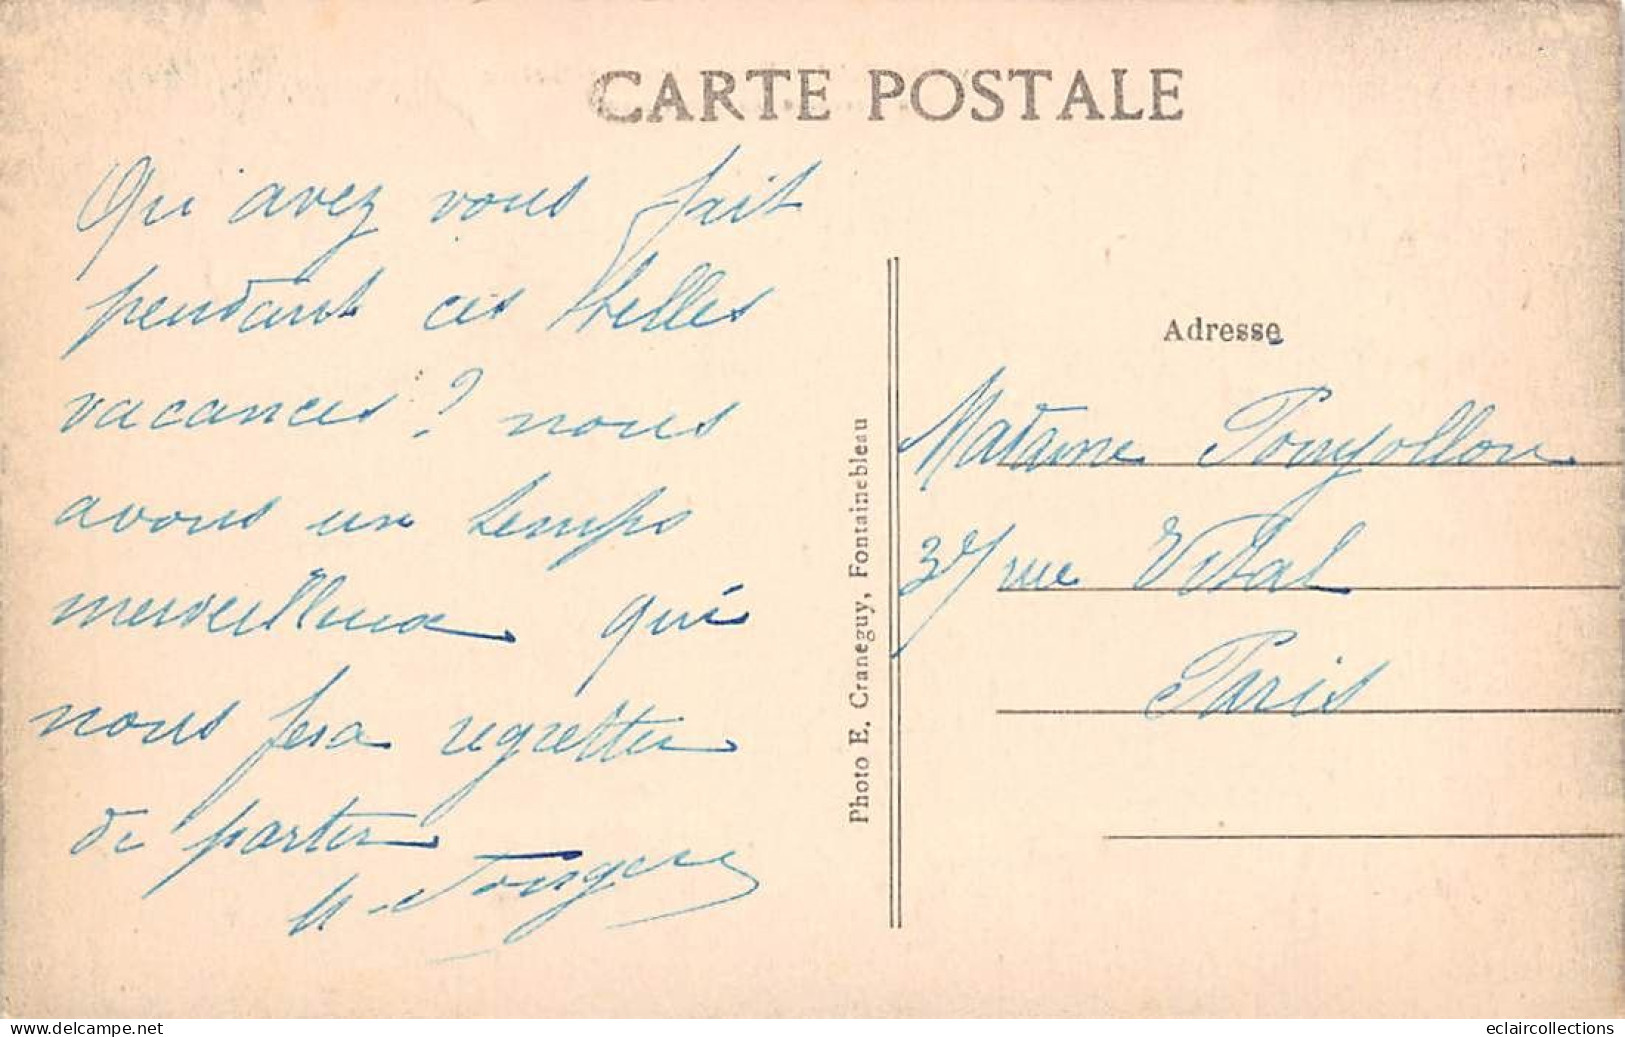 CARTE POSTALE
Qu'avez vous fait
pendant ces belles
vacances ? nous
avons un temps
merveilleux qui
nous fera regretter
de partir
Photo E. Craneguy, Fontainebleau
Adresse
Madame
37 rue Vital
Paris
www.delcampe.net
eclaircollections